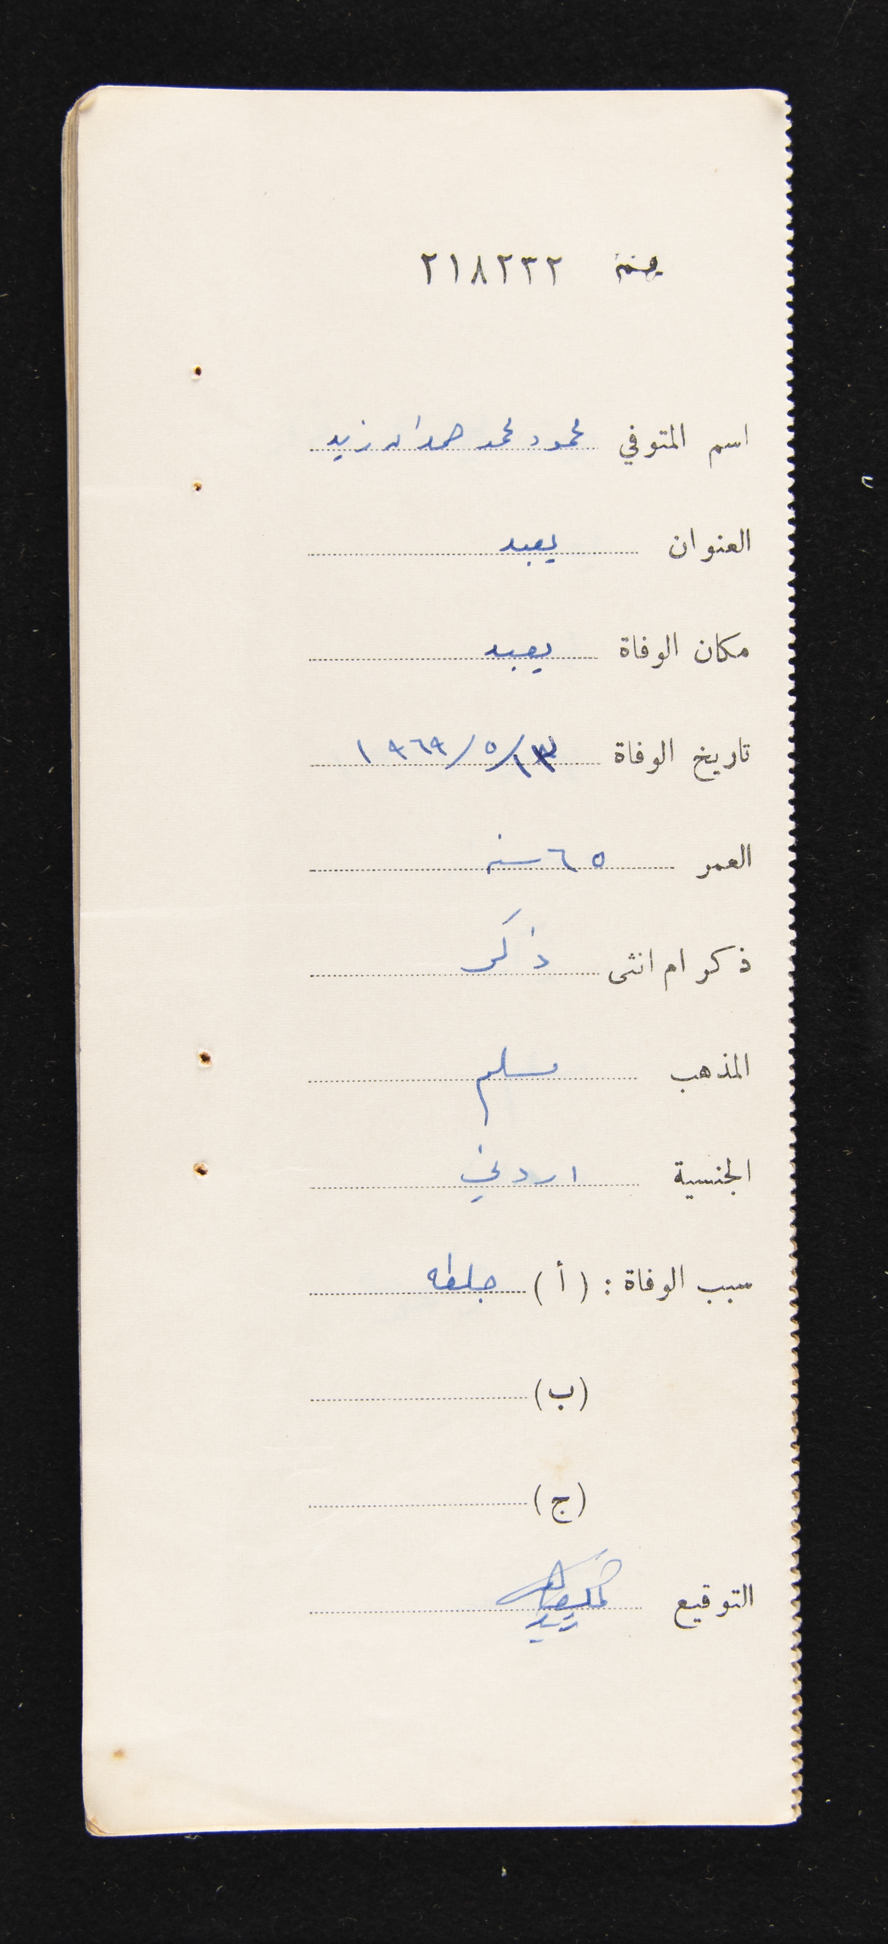 ٢١٨٢٣٢
اسم المتوفي محمود محمد حمدالله زيد
العنوان يعبد
مكان الوفاة يعبد
تاريخ الوفاة ١٣/٥/١٩٦٩
العمر ٦٥ سنه
ذكر ام انثى ذكر
المذهب مسلم
الجنسية اردني
سبب الوفاة : (أ) جلطه
(ب)
(ج)
التوقيع